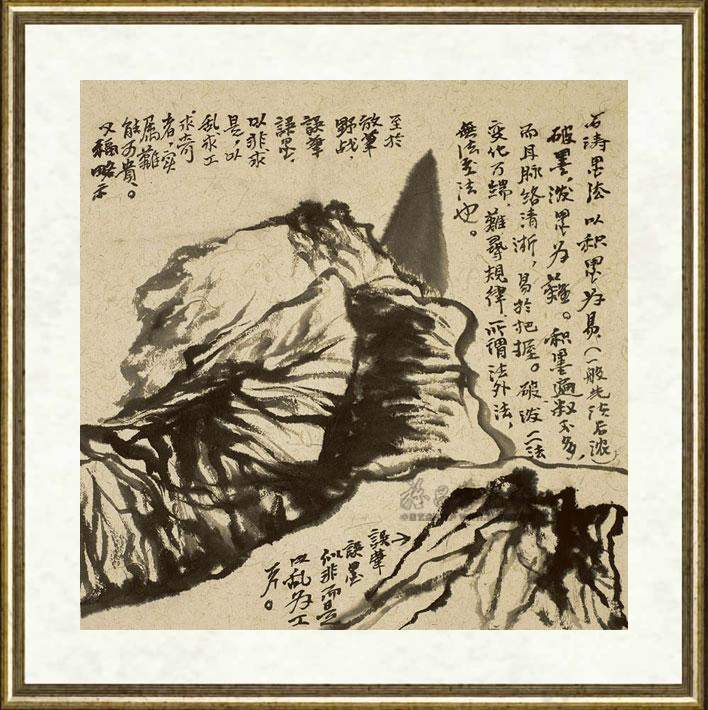 石涛墨法 以积墨为易,(一般先淡后浓)
破墨,泼墨为難。积墨遍数不多,
而且脉络清淅,易於把握。破泼二法
变化万端,難尋規律,所謂法外法,
無法至法也。
至於
放筆
野战,
誤筆
誤墨,
以非求
是,以
乱求工
求奇
者,实
属難
能可贵。
又稿略示
誤筆→
誤墨
似非而是
以乱为工